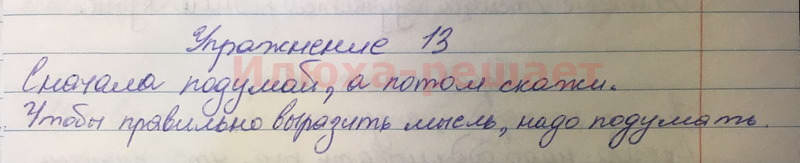 Упражнение 13
Илюха-решает
Сначала подумай, а потом скажи.
Чтобы правильно выразить мысль, надо подумать.